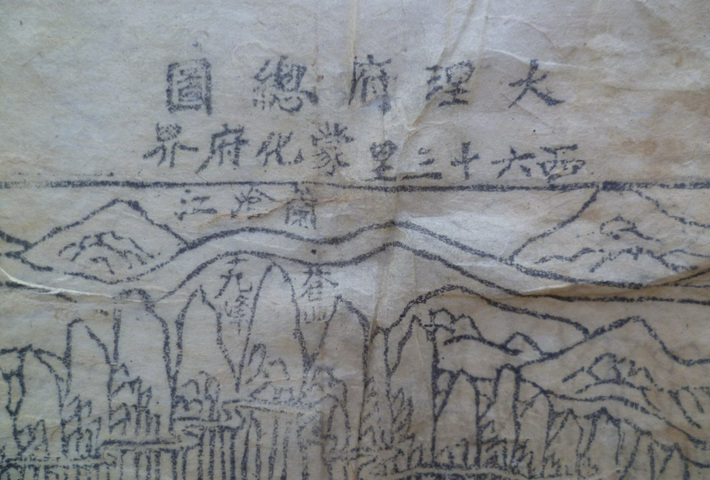 大理府總圖
西六十三里蒙化府界
蘭滄江
蒼山
九峰